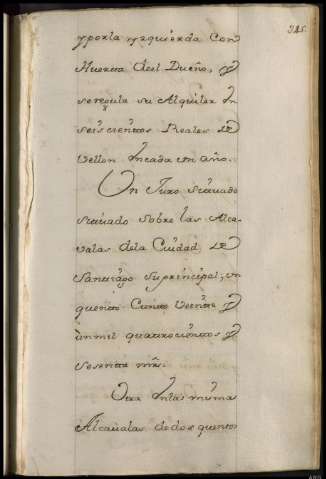 325.
y por la yzquierda Con
Huerta del Dueño, y
se regula su Alquiler en
seiscientos Reales de
Vellon en cada un año.
Un Juro situado
situado sobre las Alca-
valas de la Ciudad de
Santiago su principal, un
quento Ciento Veinte y
un mil quatrocientos y
sesenta mrs.
Otro en las mismas
Alcavalas de dos quentos